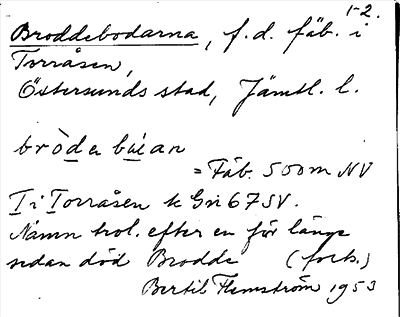 1-2.
Broddebodarna, f.d. fäb. i
Torråsen,
Östersunds stad, Jämtl. l.
bròde bu̇an
= Fäb. 500m NV
T i Torråsen k Gri 67 SV.
Namn trol. efter en för länge
sedan död Brodde (forts.)
Bertil Flemström 1953